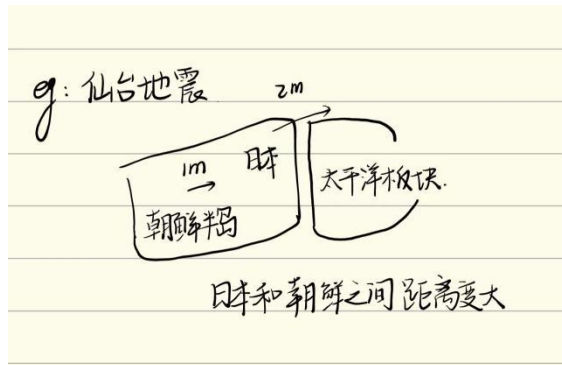 eg: 仙台地震
2m
1m
日本
朝鲜半岛
太平洋板块.
日本和朝鲜之间距离变大